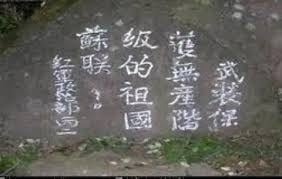 武裝保
護無產階
級的祖國
蘇联
紅軍政治部